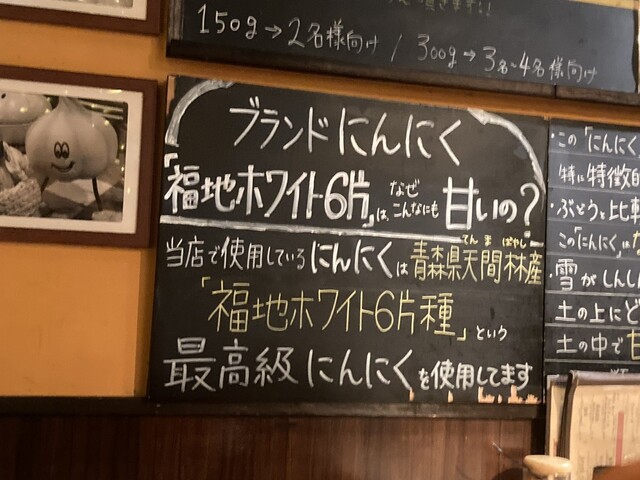 150g→2名様向け / 300g→3名~4名様向け
ブランドにんにく
「福地ホワイト6片」は、なぜこんなにも甘いの?
当店で使用しているにんにくは青森県天間林産
てんまばやし
「福地ホワイト6片種」という
最高級にんにくを使用してます
・この「にんにく
特に特徴的
・ぶどうと比較
この「にんにく」は
・雪がしんしん
土の上にど
土の中で甘